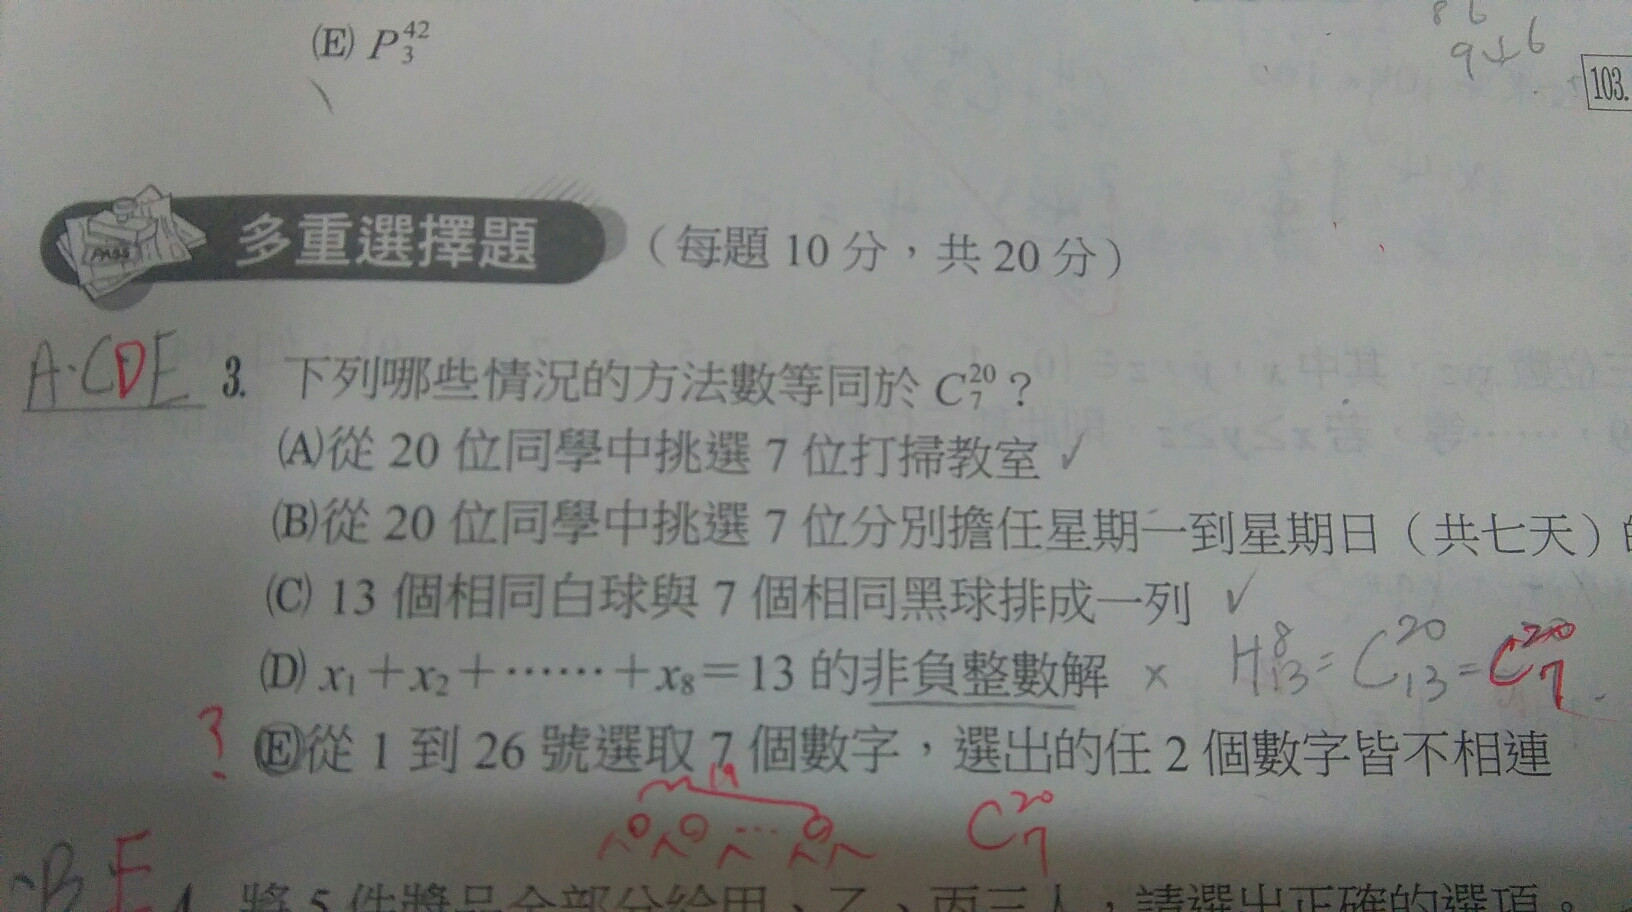 (E) P₃⁴²
86
9↓6
103.
PASS
多重選擇題 (每題 10 分,共 20 分)
A·CDE 3. 下列哪些情況的方法數等同於 C₇²⁰?
(A)從 20 位同學中挑選 7 位打掃教室 ✓
(B)從 20 位同學中挑選 7 位分別擔任星期一到星期日(共七天)
(C) 13 個相同白球與 7 個相同黑球排成一列 ✓
(D) x₁+x₂+……+x₈=13 的非負整數解 × H₁₃⁸=C₁₃²⁰=C₇²⁰
? (E)從 1 到 26 號選取 7 個數字,選出的任 2 個數字皆不相連
19
C₇²⁰
BE 4. 將 5 件獎品全部分給甲、乙、丙三人,請選出正確的選項。